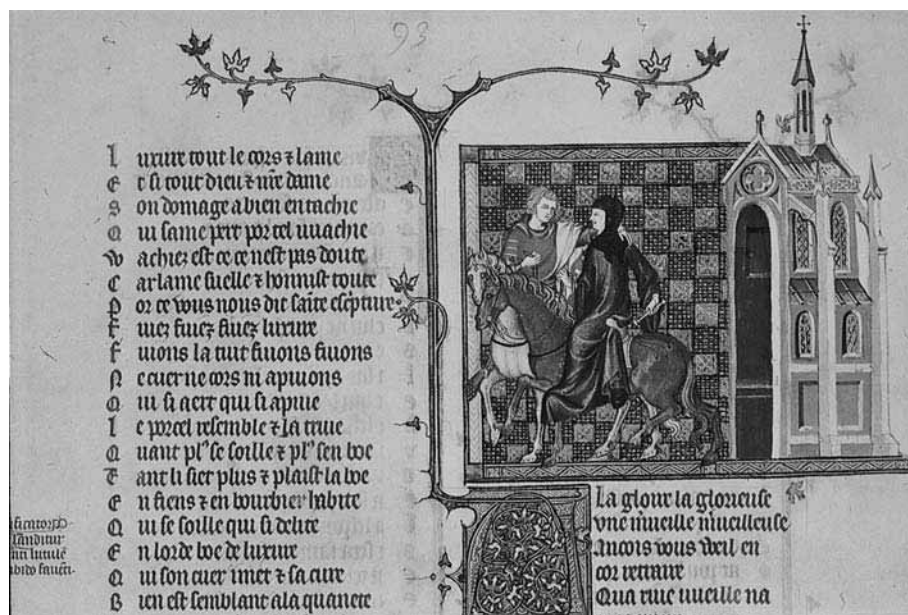 93
L uxure tout le cors ⁊ lame
E t si tout dieu ⁊ nr̃e dame
S on domage a bien entachie
Q ui same pert por cel uuachie
W achiez est ce ce nest pas doute
C ar lame suelle ⁊ honnist toute
P or ce vous nous dit sainte escripture
F uiez fuiez fuiez luxure
F uions la tuit fuions fuions
N e cuer ne cors ni apuions
Q ui si aert qui si apuie
L e porcel resemble ⁊ la truie
Q uant pl' se soille ⁊ pl' sen boe
T ant li siet plus ⁊ plaist la boe
E n fiens ⁊ en bourbier habite
Q ui se soille qui si delite
E n lorde boe de luxure
Q ui son cuer i met ⁊ sa cure
B ien est semblant a la
A La gloire la glorieuse
vne m̃ueille m̃ueilleuse
Ancois vous veil en
cor retraire
Qua